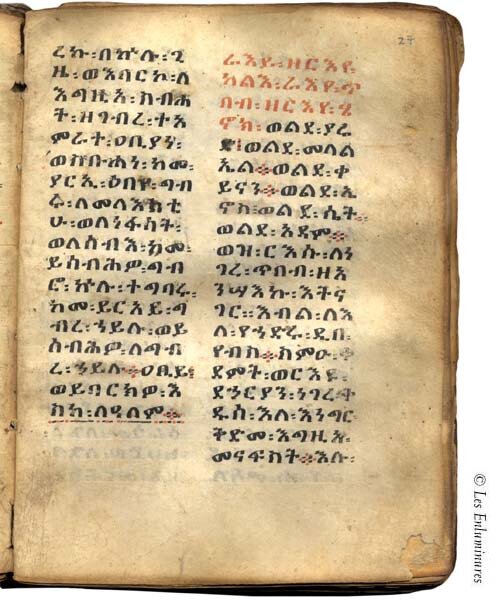 ረኩ፡በኵሉ፡ጊ
ዜ፡ወእባርኮ፡ለ
እግዚአ፡ስብሐ
ት፡ዘገብረ፡ተአ
ምራተ፡ዐቢያነ፡
ወስቡሐነ፡ከመ፡
ያርኢ፡ዕበየ፡ግብ
ሩ፡ለመላእክቲ
ሁ፡ወለነፋሳት፡
ወለሰብእ፡ከመ፡
ይሰብሕዎ፡ግብ
ሮ፡ኵሉ፡ተግባሩ፡
ከመ፡ይርአይ፡ግ
ብረ፡ኀይሉ፡ወይ
ሰብሕዎ፡ለግብ
ረ፡ኀይሉ፡ዐቢይ፡
ወይባርክዎ፡እ
ስከ፡ለዓለም።
ራእይ፡ዘርእየ፡
ካልእ፡ራእየ፡ጥ
በብ፡ዘርእየ፡ሄ
ኖክ፡ወልደ፡ያሬ
ድ፡ወልደ፡መላል
ኤል፡ወልደ፡ቃ
ይናን፡ወልደ፡ሄ
ኖስ፡ወልደ፡ሴት፡
ወልደ፡አዳም።
ወዝ፡ርእሱ፡ለነ
ገረ፡ጥበብ፡ዘአ
ንሣእኩ፡እትና
ገር፡እብል፡ለእ
ለ፡የኀድሩ፡ዲበ፡
የብስ፡ስምዑ፡ቀ
ደምት፡ወርእዩ፡
ደኃርያን፡ነገረ፡ቅ
ዱስ፡እለ፡እነግር፡
ቅድመ፡እግዚአ፡
መናፍስት፡እሉ፡
© Les Enluminures